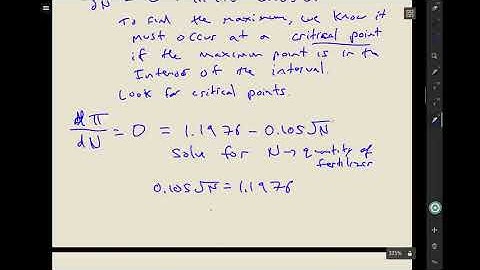 To find the maximum, we know it
must occur at a critical point
if the maximum point is in th
Interior of the interval.
Look for critical points.
dΠ/dN = 0 = 1.1976 - 0.105√N
solve for N → quantity of
fertilizer
0.105√N = 1.1976
325%